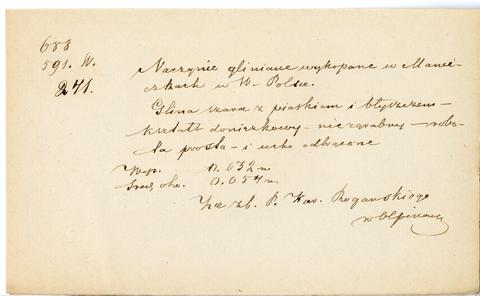 688
591. W.
241.
Naczynie gliniane wykopane w Maniecz-
kach w W. Polsce.
Glina szara z piaskiem i błyszczem –
kształt doniczkowy – niezgrabny – robo-
ta prosta – i ucho odtrącone
Wys. 0.032 m.
Śred. otw. 0.054 m.
Ze zb. P. Kav. Rogawskiego